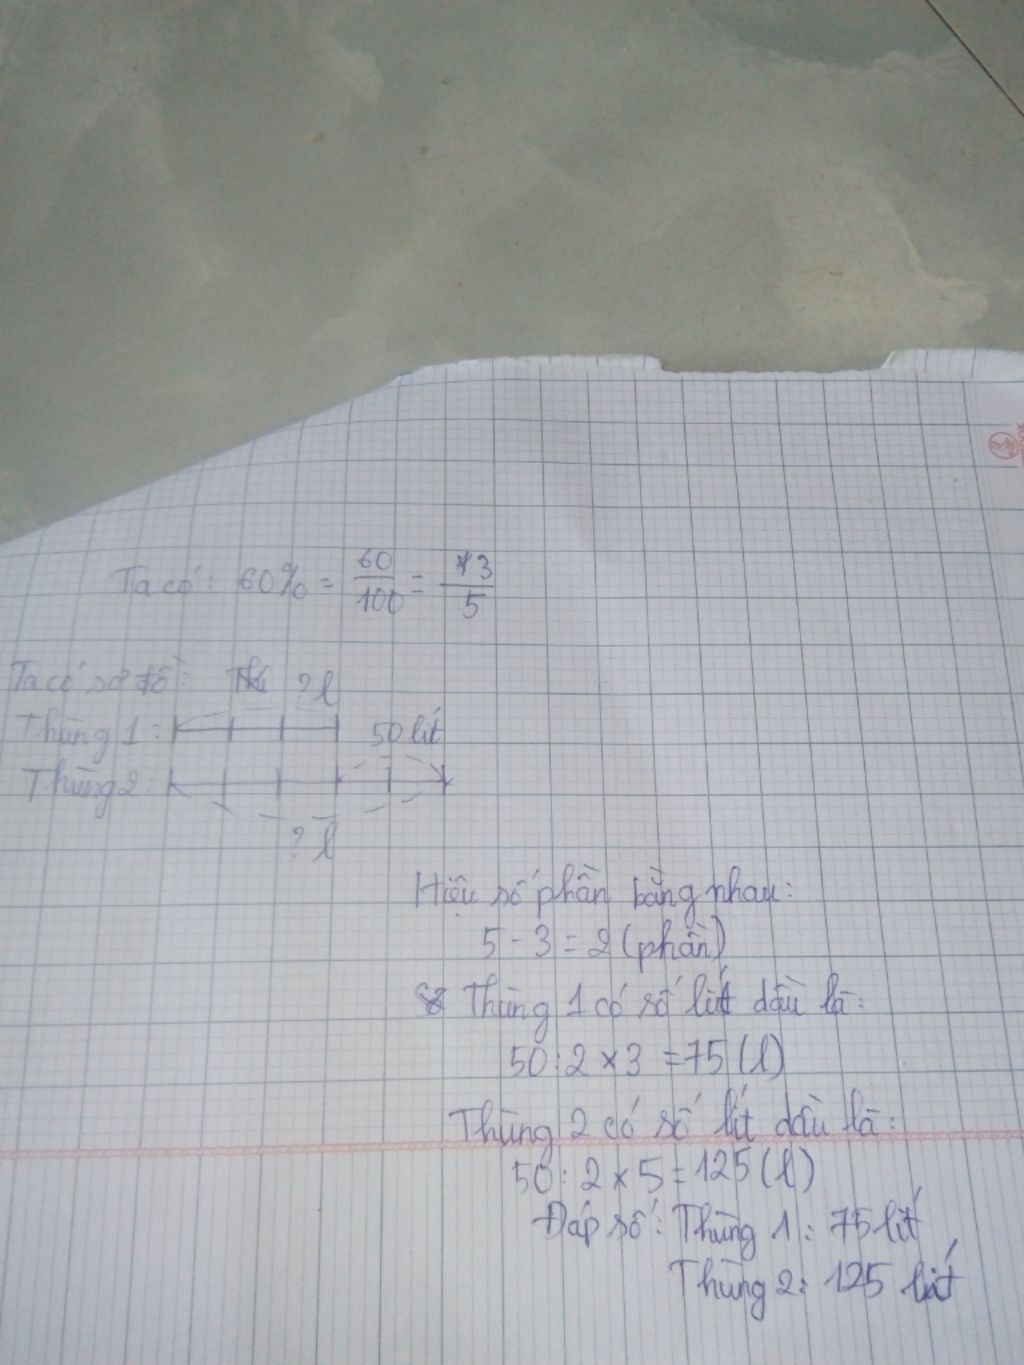 Ta có: 60% = 60/100 = 3/5
Ta có sơ đồ: ? l
Thùng 1: 50 lít
Thùng 2:
? l
Hiệu số phần bằng nhau:
5 - 3 = 2 (phần)
Thùng 1 có số lít dầu là:
50 : 2 x 3 = 75 (l)
Thùng 2 có số lít dầu là:
50 : 2 x 5 = 125 (l)
Đáp số: Thùng 1: 75 lít
Thùng 2: 125 lít